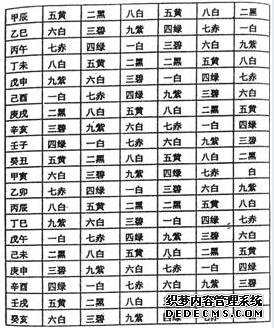 甲辰 五黄 二黑 八白 五黄 八白 二黑
乙巳 六白 三碧 九紫 四绿 七赤 一白
丙午 七赤 四绿 一白 三碧 六白 九紫
丁未 八白 五黄 二黑 二黑 五黄 八白
戊申 九紫 六白 三碧 一白 四绿 七赤
己酉 一白 七赤 四绿 九紫 三碧 六白
庚戌 二黑 八白 五黄 八白 二黑 五黄
辛亥 三碧 九紫 六白 七赤 一白 四绿
壬子 四绿 一白 七赤 六白 九紫 三碧
癸丑 五黄 二黑 八白 五黄 八白 二黑
甲寅 六白 三碧 九紫 四绿 七赤 白
乙卯 七赤 四绿 一白 三碧 六白 九紫
丙辰 八白 五黄 二黑 二黑 五黄 八白
丁巳 九紫 六白 三碧 一白 四绿 七赤
戊午 一白 七赤 四绿 九紫 三碧 六白
己未 二黑 八白 五黄 八白 二黑 五黄
庚申 三碧 九紫 六白 七赤 一白 四绿
辛酉 四绿 一白 七赤 六白
壬戌 五黄 二黑 八白 五黄
癸亥 六白 三碧 九紫 四绿
织梦内容管理系统
DEDECMS.COM